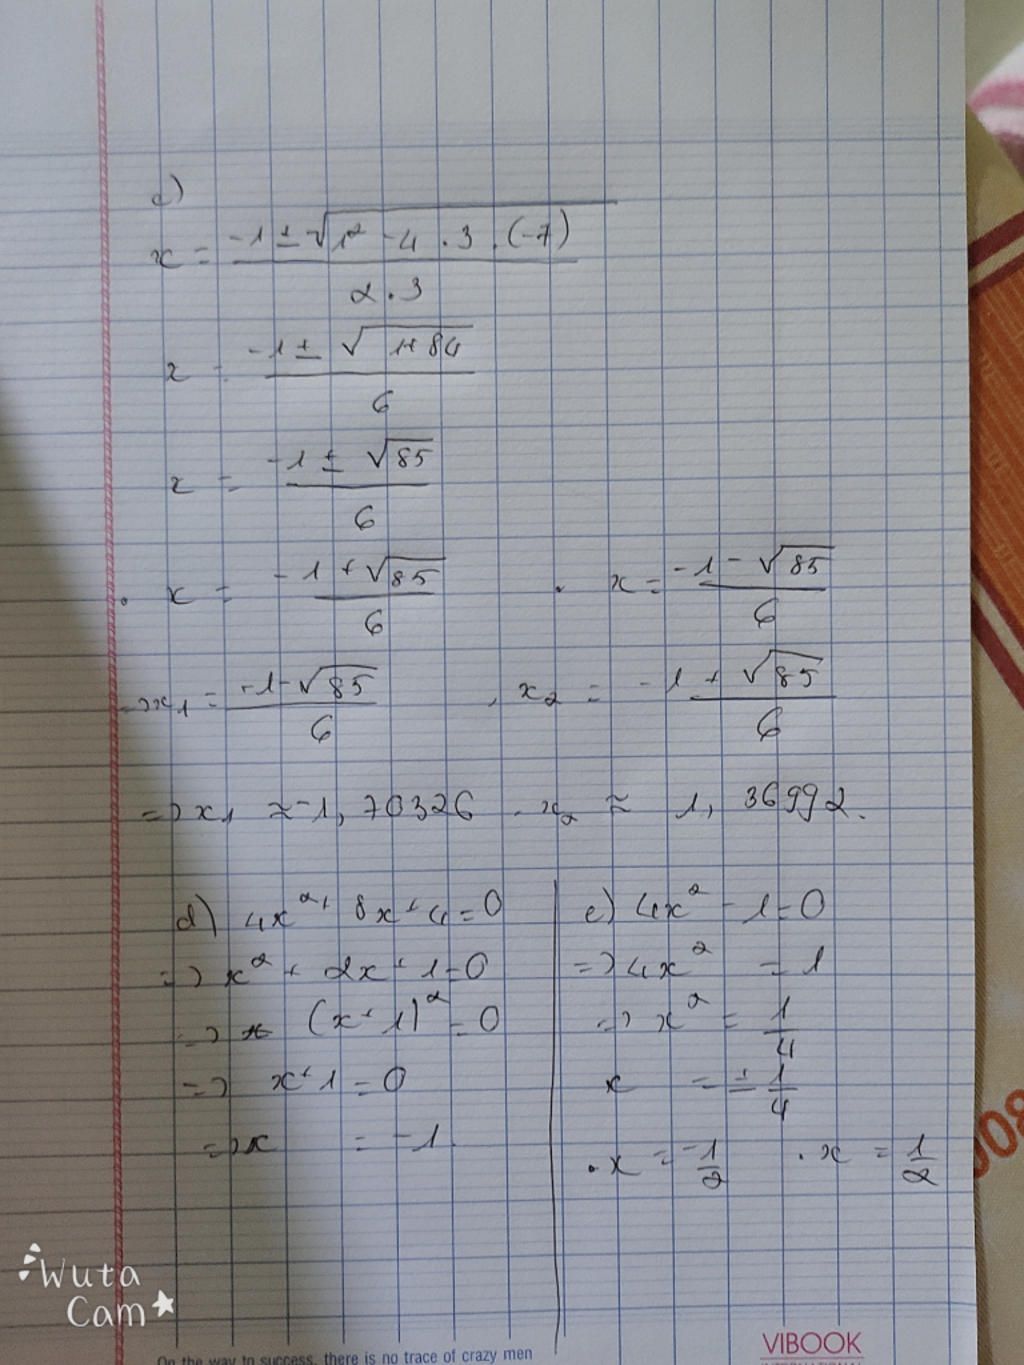 c)
x = (-1 ± √(1² - 4 . 3 . (-7))) / (2 . 3)
x = (-1 ± √(1+84)) / 6
x = (-1 ± √85) / 6
. x = (-1 + √85) / 6 . x = (-1 - √85) / 6
=> x₁ = (-1 - √85) / 6 , x₂ = (-1 + √85) / 6
=> x₁ ≈ -1,70326 . x₂ ≈ 1,36992.
d) 4x² + 8x + 4 = 0
=> x² + 2x + 1 = 0
=> (x + 1)² = 0
=> x + 1 = 0
=> x = -1
e) 4x² - 1 = 0
=> 4x² = 1
=> x² = 1/4
x = ± 1/4
. x = -1/2 . x = 1/2
Wuta
Cam
On the way to success, there is no trace of crazy men
VIBOOK
INTERNATIONAL
008